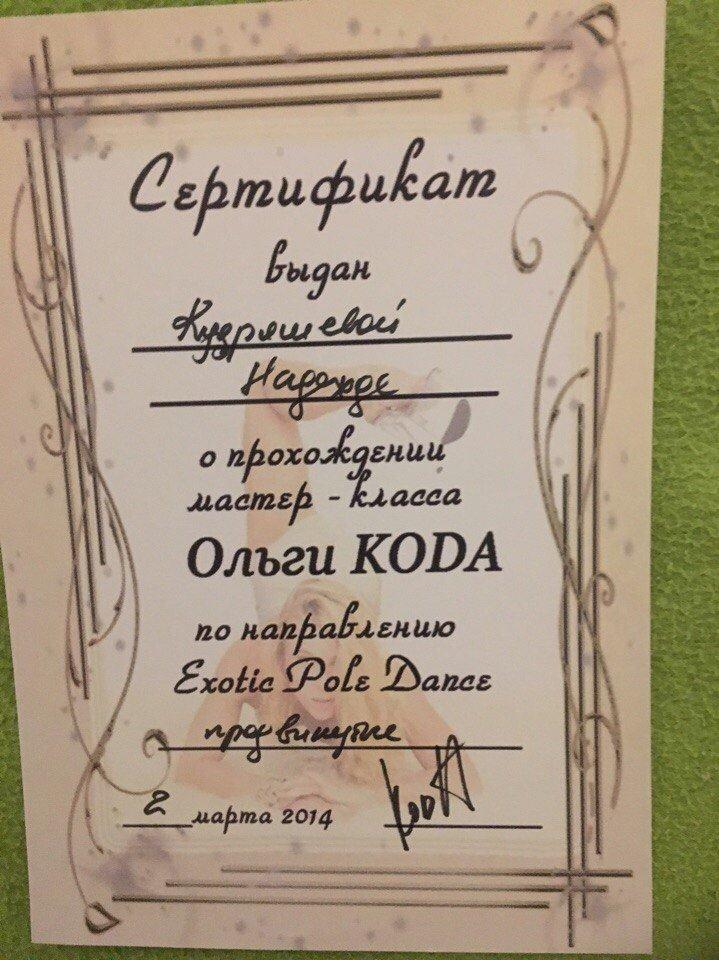 Сертификат
выдан
Кудряшевой
Надежде
о прохождении
мастер - класса
Ольги KODA
по направлению
Exotic Pole Dance
продвинутые
2 марта 2014 KODA